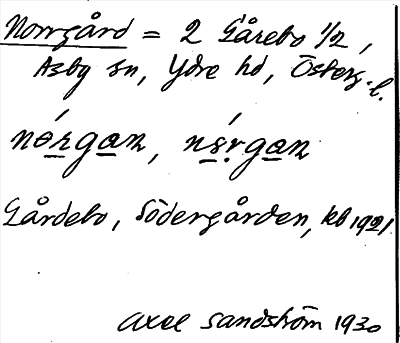 Norrgård = 2 Gårebo 1/2,
Asby sn, Ydre hd, Österg.l.
nórgan, nórgan
Gårdebo, Södergården, kb 1921.
Axel Sandström 1930